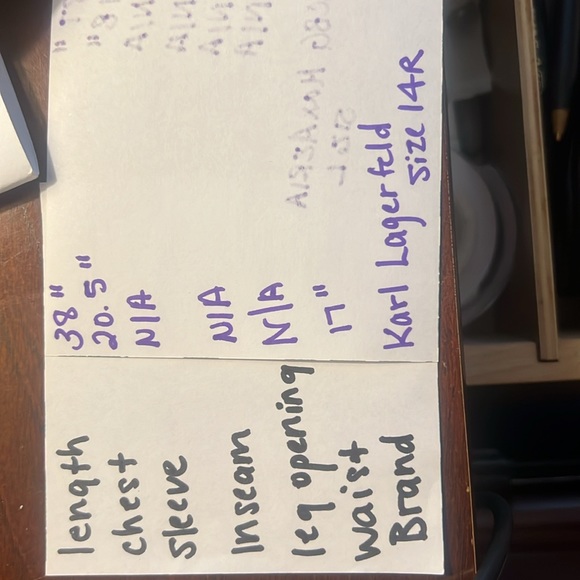 length 38"
chest 20.5"
sleeve N/A
Inseam N/A
leg opening N/A
waist 17"
Brand Karl Lagerfeld
Size 14R